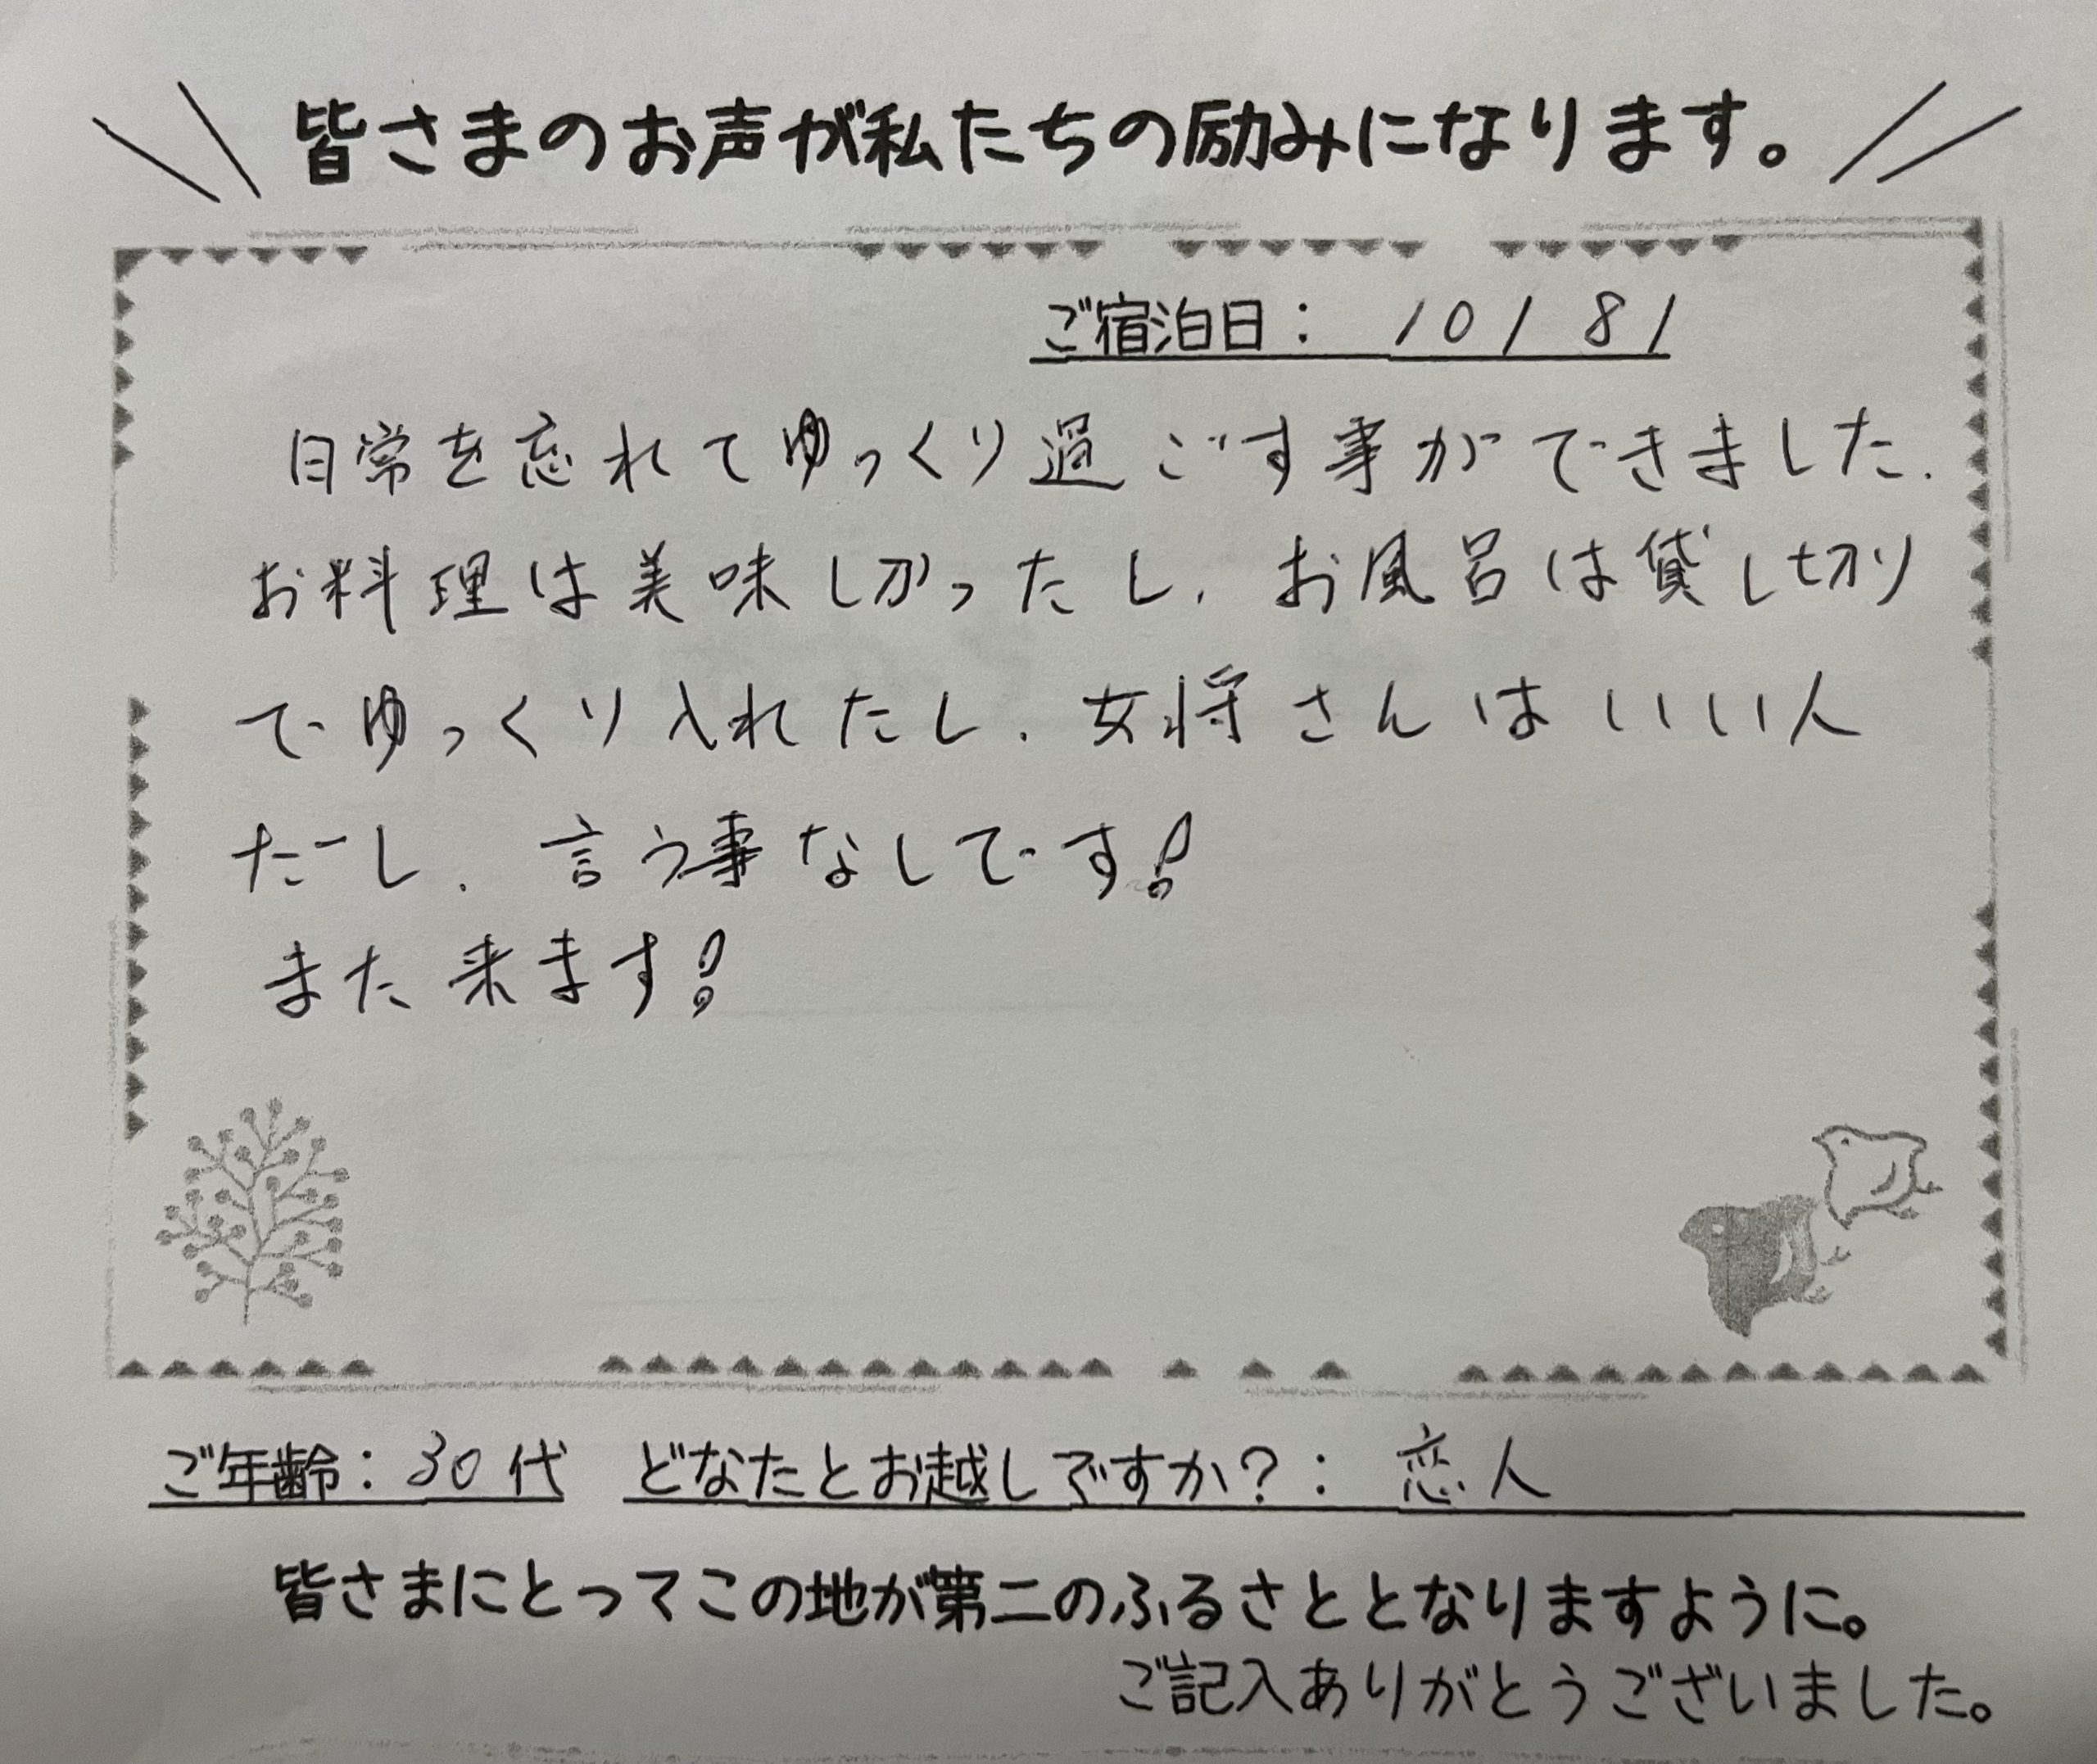 皆さまのお声が私たちの励みになります。
ご宿泊日: 10/8/
日常を忘れてゆっくり過ごす事ができました.
お料理は美味しかったし、お風呂は貸し切り
でゆっくり入れたし、女将さんはいい人
だーし、言う事なしです!
また来ます!
ご年齢:30代 どなたとお越しですか?:恋人
皆さまにとってこの地が第二のふるさととなりますように。
ご記入ありがとうございました。